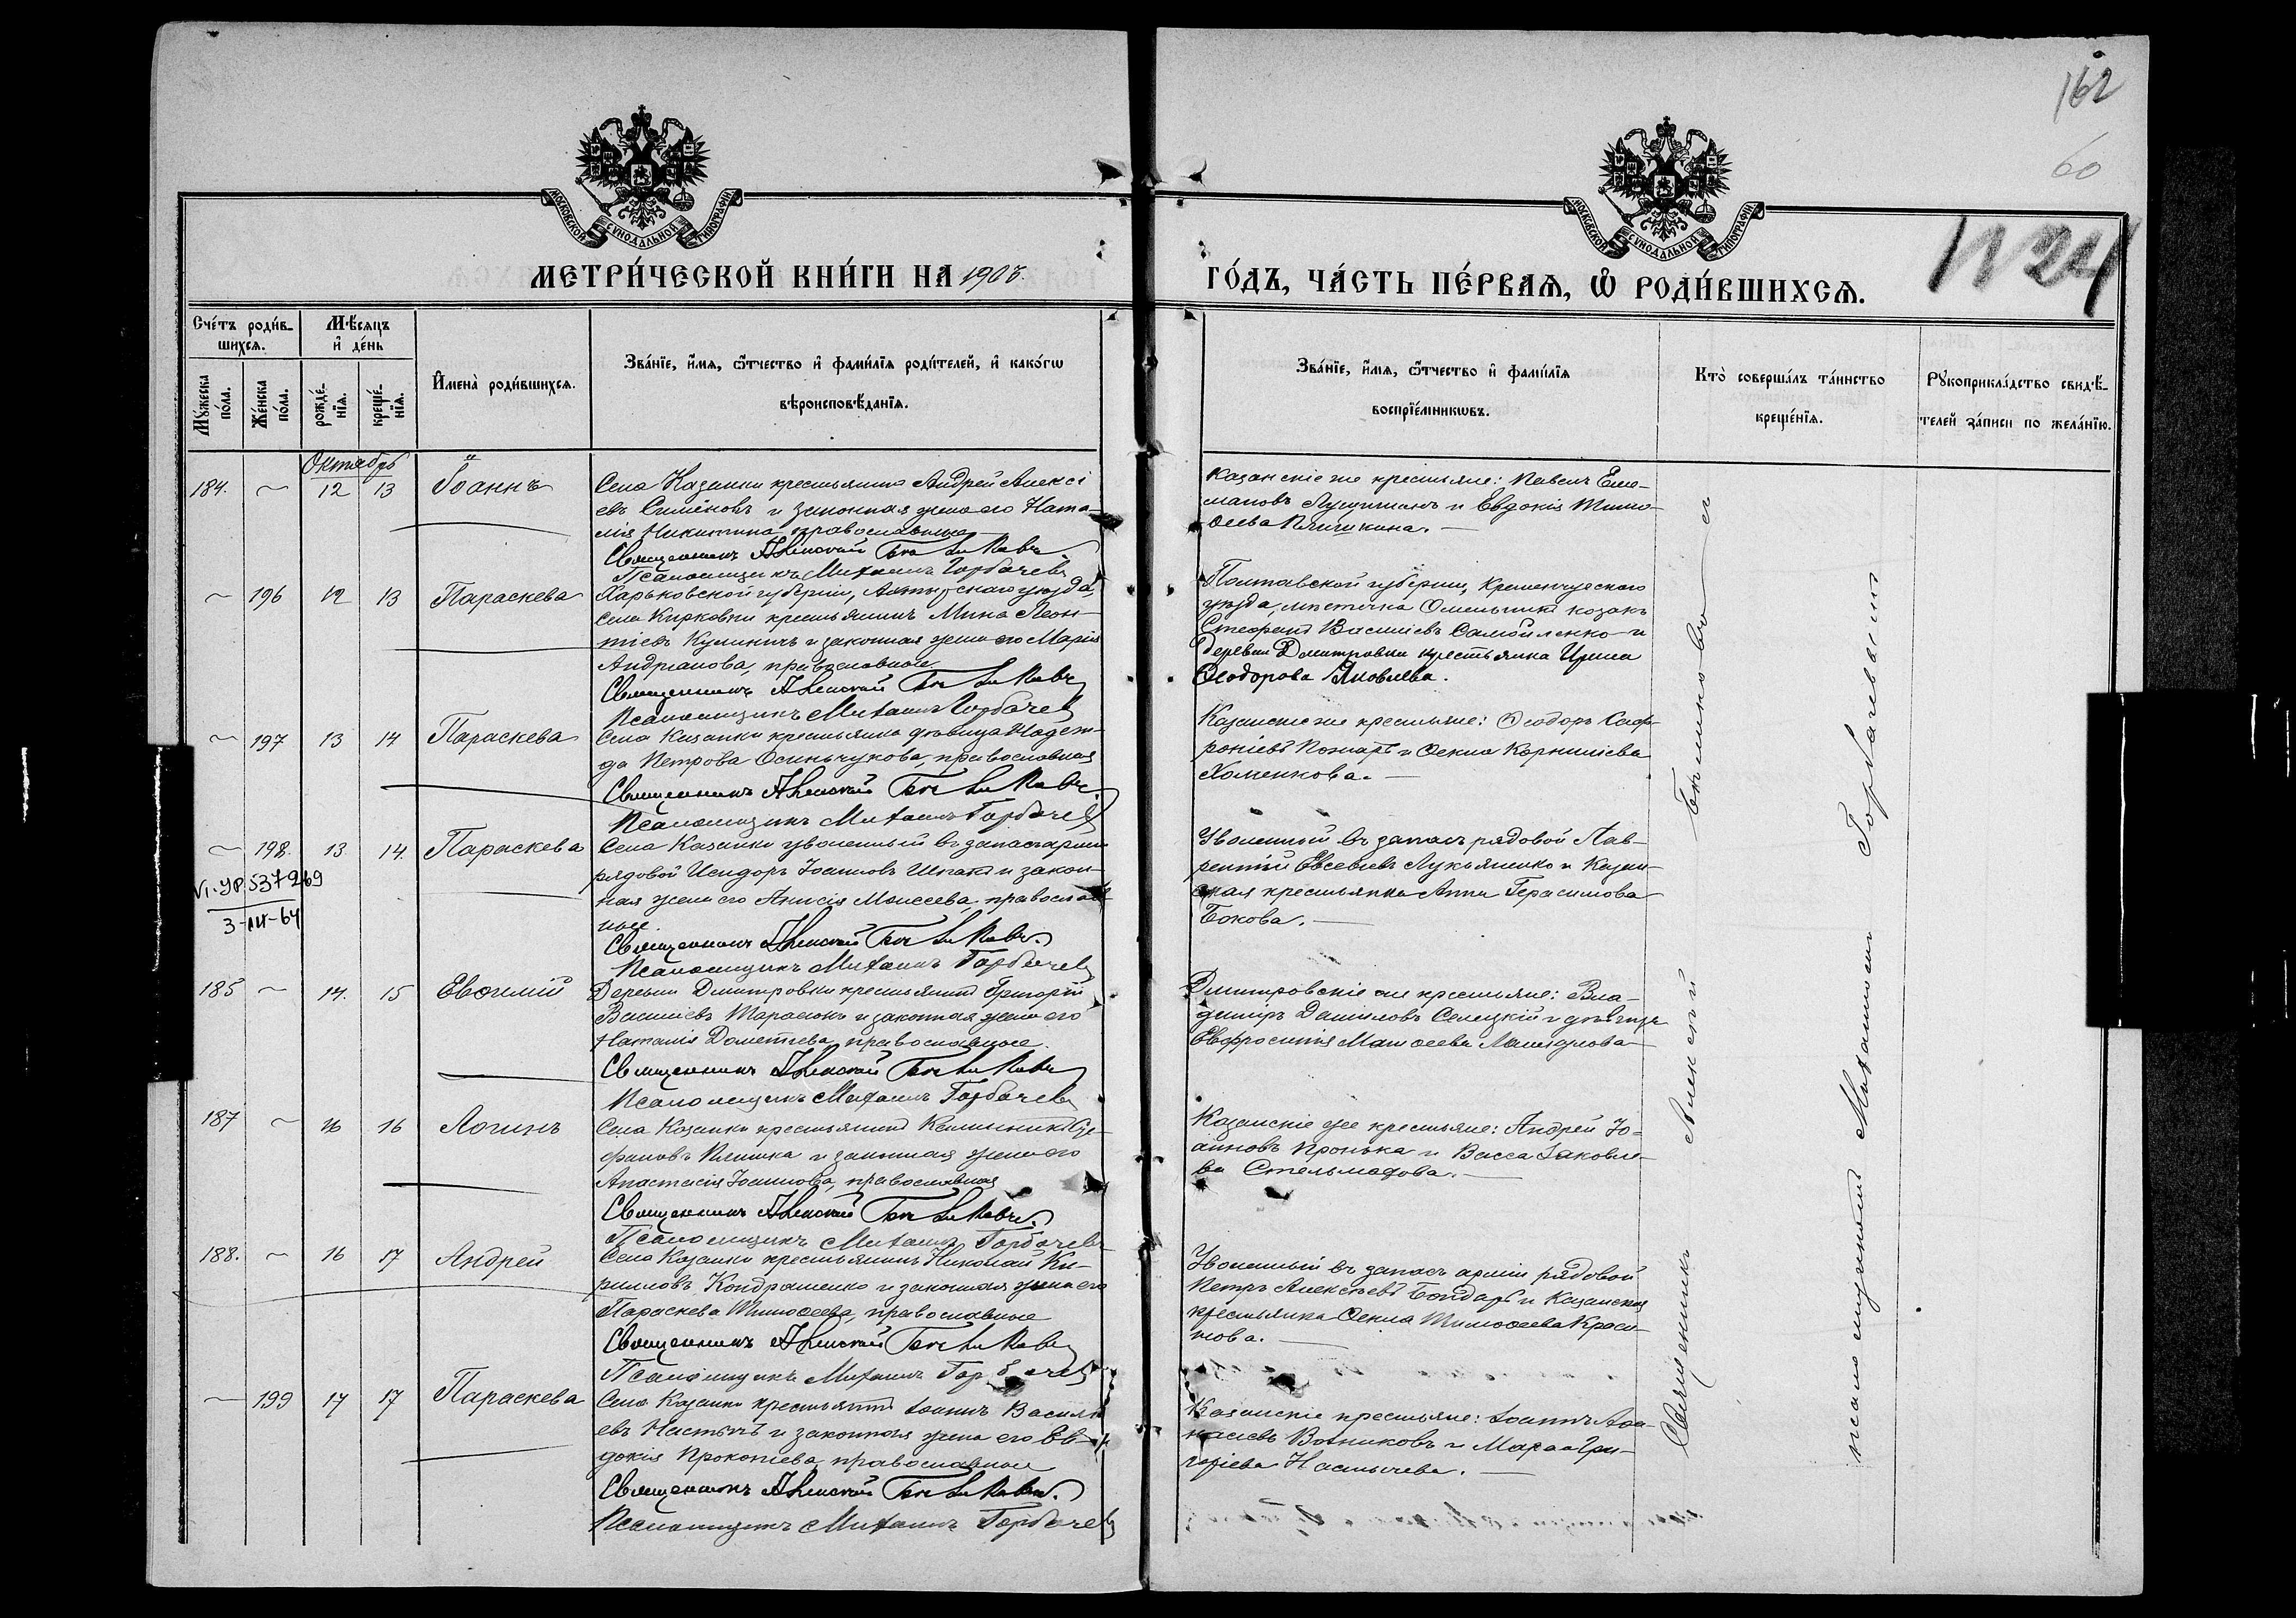 162
60
МОСКОВСКОЙ СУНОДАЛЬНОЙ ТИПОГРАФІИ
МОСКОВСКОЙ СУНОДАЛЬНОЙ ТИПОГРАФІИ
№ 24
МЕТРИ́ЧЕСКОЙ КНИ́ГИ НА 1908.
ГО́ДЪ, ЧА́СТЬ ПЕ́РВАѦ, Ѡ҆ РОДИ́ВШИХСѦ.
Сче́тъ роди́в-
шихсѧ.
Мꙋ́жеска по́ла.
Же́нска по́ла.
Мѣ́сяцъ
и҆ де́нь
рожде́-
нїѧ.
креще́-
нїѧ.
И҆мена̀ роди́вшихсѧ.
Зва́нїе, и҆́мѧ, ѻ҆́тчество и҆ фами́лїѧ роди́телей, и҆ како́гѡ
вѣроисповѣ́данїѧ.
Зва́нїе, и҆́мѧ, ѻ҆́тчество и҆ фами́лїѧ
воспрїе́мникѡвъ.
Кто̀ соверша́лъ та́инство
креще́нїѧ.
Рꙋкоприкла́дство свидѣ́-
телей за́писи по жела́нїю.
Октябрь
184. ~ 12 13 Іоаннъ
Села Казанки крестьянинъ Андрей Алексі
евъ Симёновъ и законная жена его Ната-
лія Никитина, православные
Священникъ Алексій
Псаломщикъ Михаилъ Горбачевъ
Казанскіе же крестьяне: Павелъ
и Евдокія Тимо-
ѳеева
~ 196 12 13 Параскева
Харьковской губерніи, уѣзда,
села крестьянинъ Мина Леон-
тіевъ и законная жена его Марія
Андріанова, православные
Священникъ Алексій
Псаломщикъ Михаилъ Горбачевъ
Полтавской губерніи, Кременчугскаго
уѣзда, мѣстечка Омельника козакъ
Стефанъ Василіевъ Самойленко и
деревни Дмитровки крестьянка Ирина
Ѳеодорова Яковлева.
~ 197 13 14 Параскева
Села Казанки крестьянка дѣвица Надеж-
да Петрова Осиньчукова, православная
Священникъ Алексій
Псаломщикъ Михаилъ Горбачевъ
Казанскіе же крестьяне: Ѳеодоръ Соф-
роніевъ и Ѳекла Корниліева
Хоменкова.
~ 198. 13 14. Параскева
VI-УР.537269
3-III-64
Села Казанки уволенный въ запасъ арміи
рядовой Исидоръ Іоанновъ Шпакъ и закон-
ная жена его Анисія Моисеева, православ-
ные.
Священникъ Алексій
Псаломщикъ Михаилъ Горбачевъ
Уволенный въ запасъ рядовой Лав-
рентій Евсевіевъ Лукьяненко и Казан-
ская крестьянка Анна Герасимова
Бокова.
185 ~ 14. 15 Евѳимій
Деревни Дмитровки крестьянинъ Григорій
Василіевъ и законная жена его
Наталія Дометіева, православные.
Священникъ Алексій
Псаломщикъ Михаилъ Горбачевъ
Дмитровскіе же крестьяне: Вла-
диміръ Даниловъ Селецкій и дѣвица
Евфросинія Матѳеева
187 ~ 16 16 Логинъ
Села Казанки крестьянинъ Каллиникъ Сте-
фановъ и законная жена его
Анастасія Іоаннова, православные
Священникъ Алексій
Псаломщикъ Михаилъ Горбачевъ
Казанскіе же крестьяне: Андрей Іо-
анновъ Пронька и Васса Іаковле-
ва Стельмахова.
188. ~ 16 17 Андрей
Села Казанки крестьянинъ Николай Ки-
рилловъ Кондратенко и законная жена его
Параскева Тимоѳеева, православные
Священникъ Алексій
Псаломщикъ Михаилъ Горбачевъ
Уволенный въ запасъ арміи рядовой
Петръ Алексѣевъ Бондарь и Казанская
крестьянка Ѳекла Тимоѳеева
~ 199 17 17 Параскева
Села Казанки крестьянинъ Іоаннъ Василі
евъ и законная жена его Ев-
докія Прокопіева, православные
Священникъ Алексій
Псаломщикъ Михаилъ Горбачевъ
Казанскіе крестьяне: Іоаннъ Аѳа-
насіевъ Вотниковъ и Марѳа Гри-
горіева
Священникъ Алексій
псаломщикомъ Михаиломъ Горбачевымъ